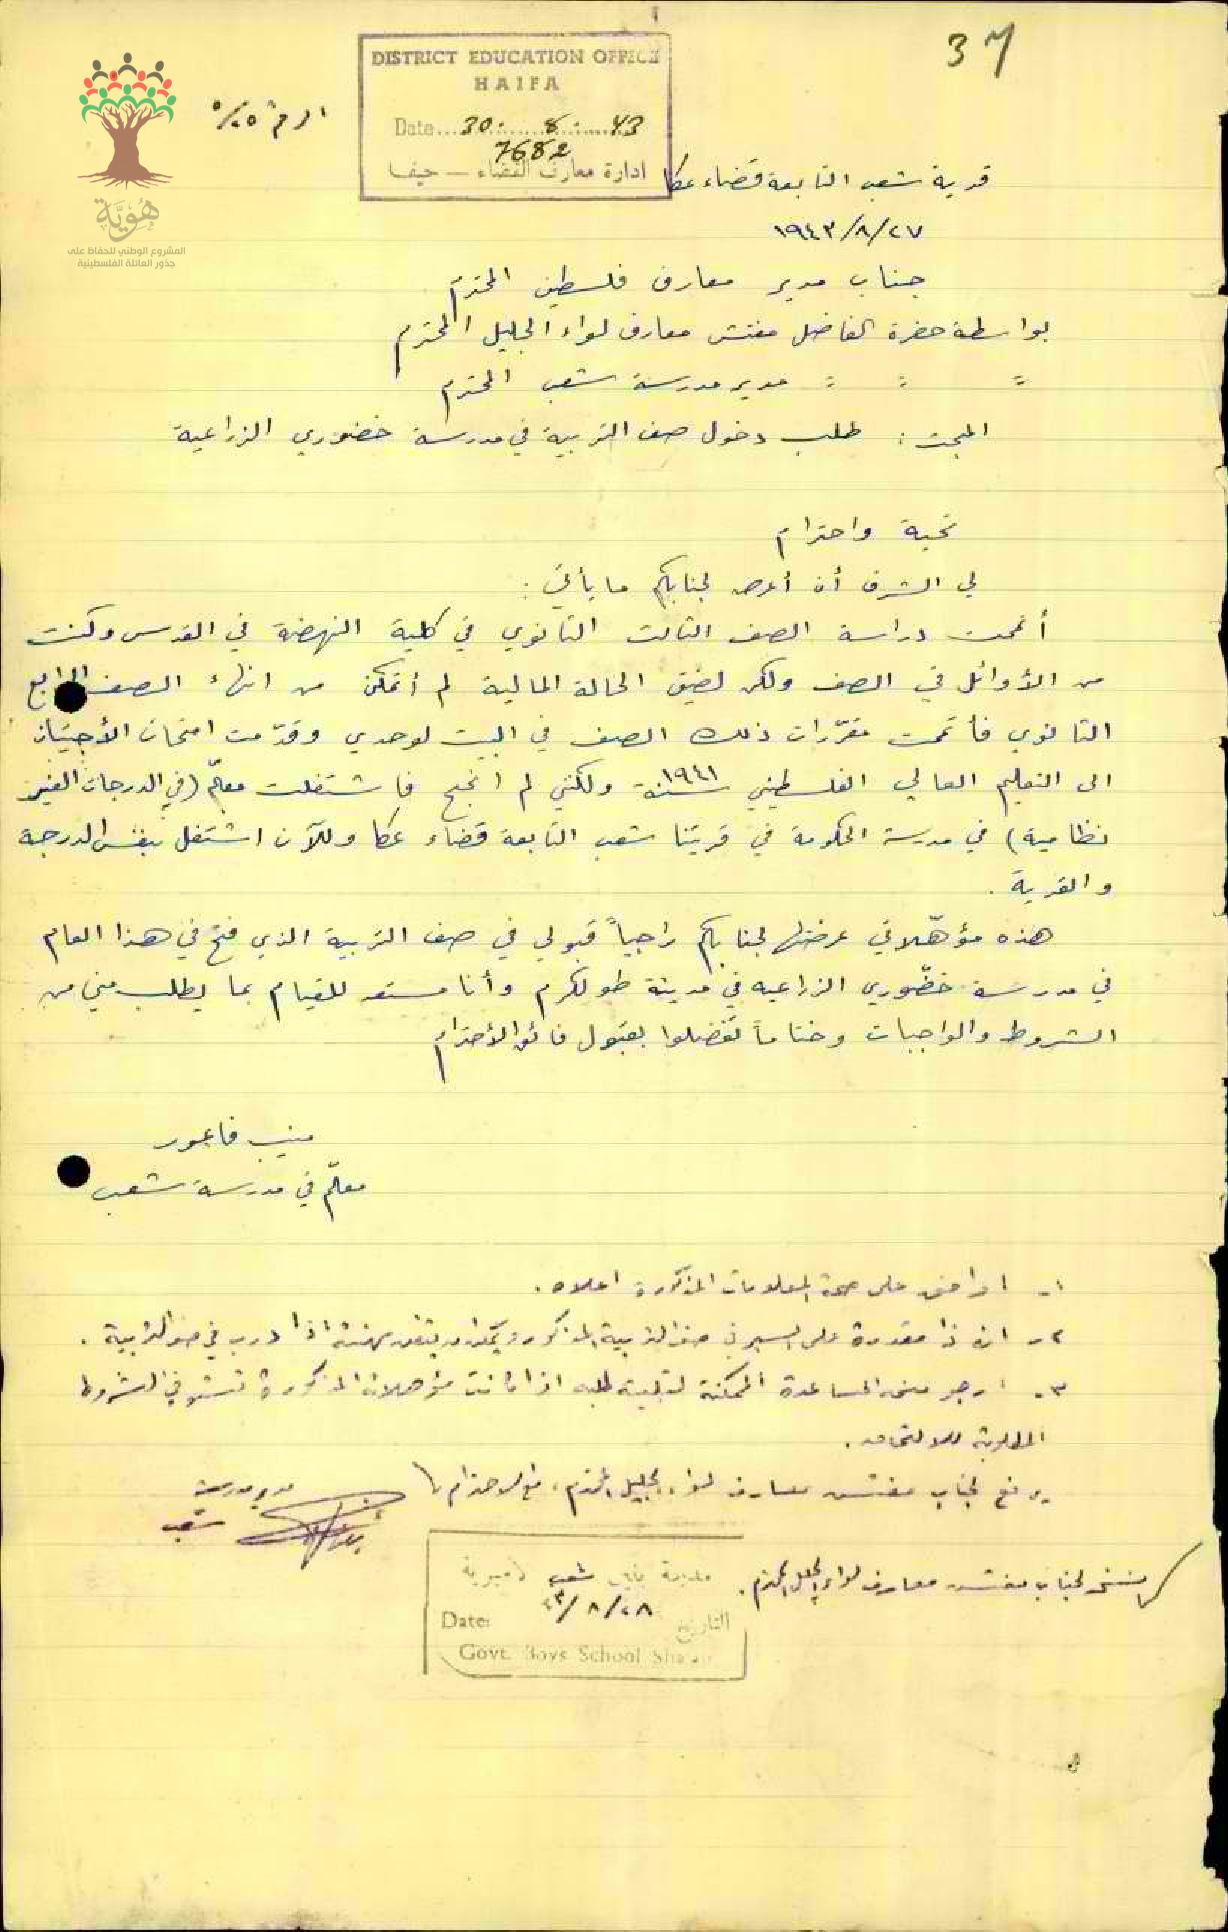 37
DISTRICT EDUCATION OFFICE
HAIFA
Date 30. 8. 43
7682
ادارة معارف القضاء — حيفا
الرقم ٥/٢٥
هُوِيَّة
المشروع الوطني للحفاظ على
جذور العائلة الفلسطينية
قرية شعب التابعة قضاء عكا
١٩٤٣/٨/٢٧
جناب مدير معارف فلسطين المحترم
بواسطة حضرة الفاضل مفتش معارف لواء الجليل المحترم
= = = مدير مدرسة شعب المحترم
المبحث : طلب دخول صف التربية في مدرسة خضوري الزراعية
تحية واحترام
لي الشرف أن أعرض لجنابكم ما يأتي :
أتممت دراسة الصف الثالث الثانوي في كلية النهضة في القدس وكنت
من الأوائل في الصف ولكن لضيق الحالة المالية لم أتمكن من انهاء الصف الرابع
الثانوي فأتممت مقرّرات ذلك الصف في البيت لوحدي وقدّمت امتحان الأجتياز
الى التعليم العالي الفلسطيني سنة ١٩٤١ ولكنني لم انجح فاشتغلت معلّم (في الدرجات الغير
نظامية) في مدرسة الحكومة في قريتنا شعب التابعة قضاء عكا وللآن اشتغل بنفس الدرجة
والقرية .
هذه مؤهّلاتي عرضتها لجنابكم راجياً قبولي في صف التربية الذي فتح في هذا العام
في مدرسة خضّوري الزراعيه في مدينة طولكرم وأنا مستعد للقيام بما يطلب مني من
الشروط والواجبات وختاماً تفضلوا بقبول فائق الأحترام
منيب فاعور
معلّم في مدرسة شعب
١- اوافق على صحة المعلومات المذكورة اعلاه .
٢- انه ذا مقدرة على السير في صف التربية المذكور ويمكنه ان يتقن مهنته اذا درب في صف التربية .
٣- ارجو منحه المساعدة الممكنة لتلبية طلبه اذا كانت مؤهلاته المذكورة تستوفي الشروط
المطلوبة للالتحاق .
يرفع لجناب مفتش معارف لواء الجليل المحترم ، مع الاحترام
مدير مدرسة
شعب
نسخة لجناب مفتش معارف لواء الجليل المحترم .
مدرسة بنين شعب الاميرية
التاريخ ٤٣/٨/٢٨ Date:
Govt. Boys School Sha'ab